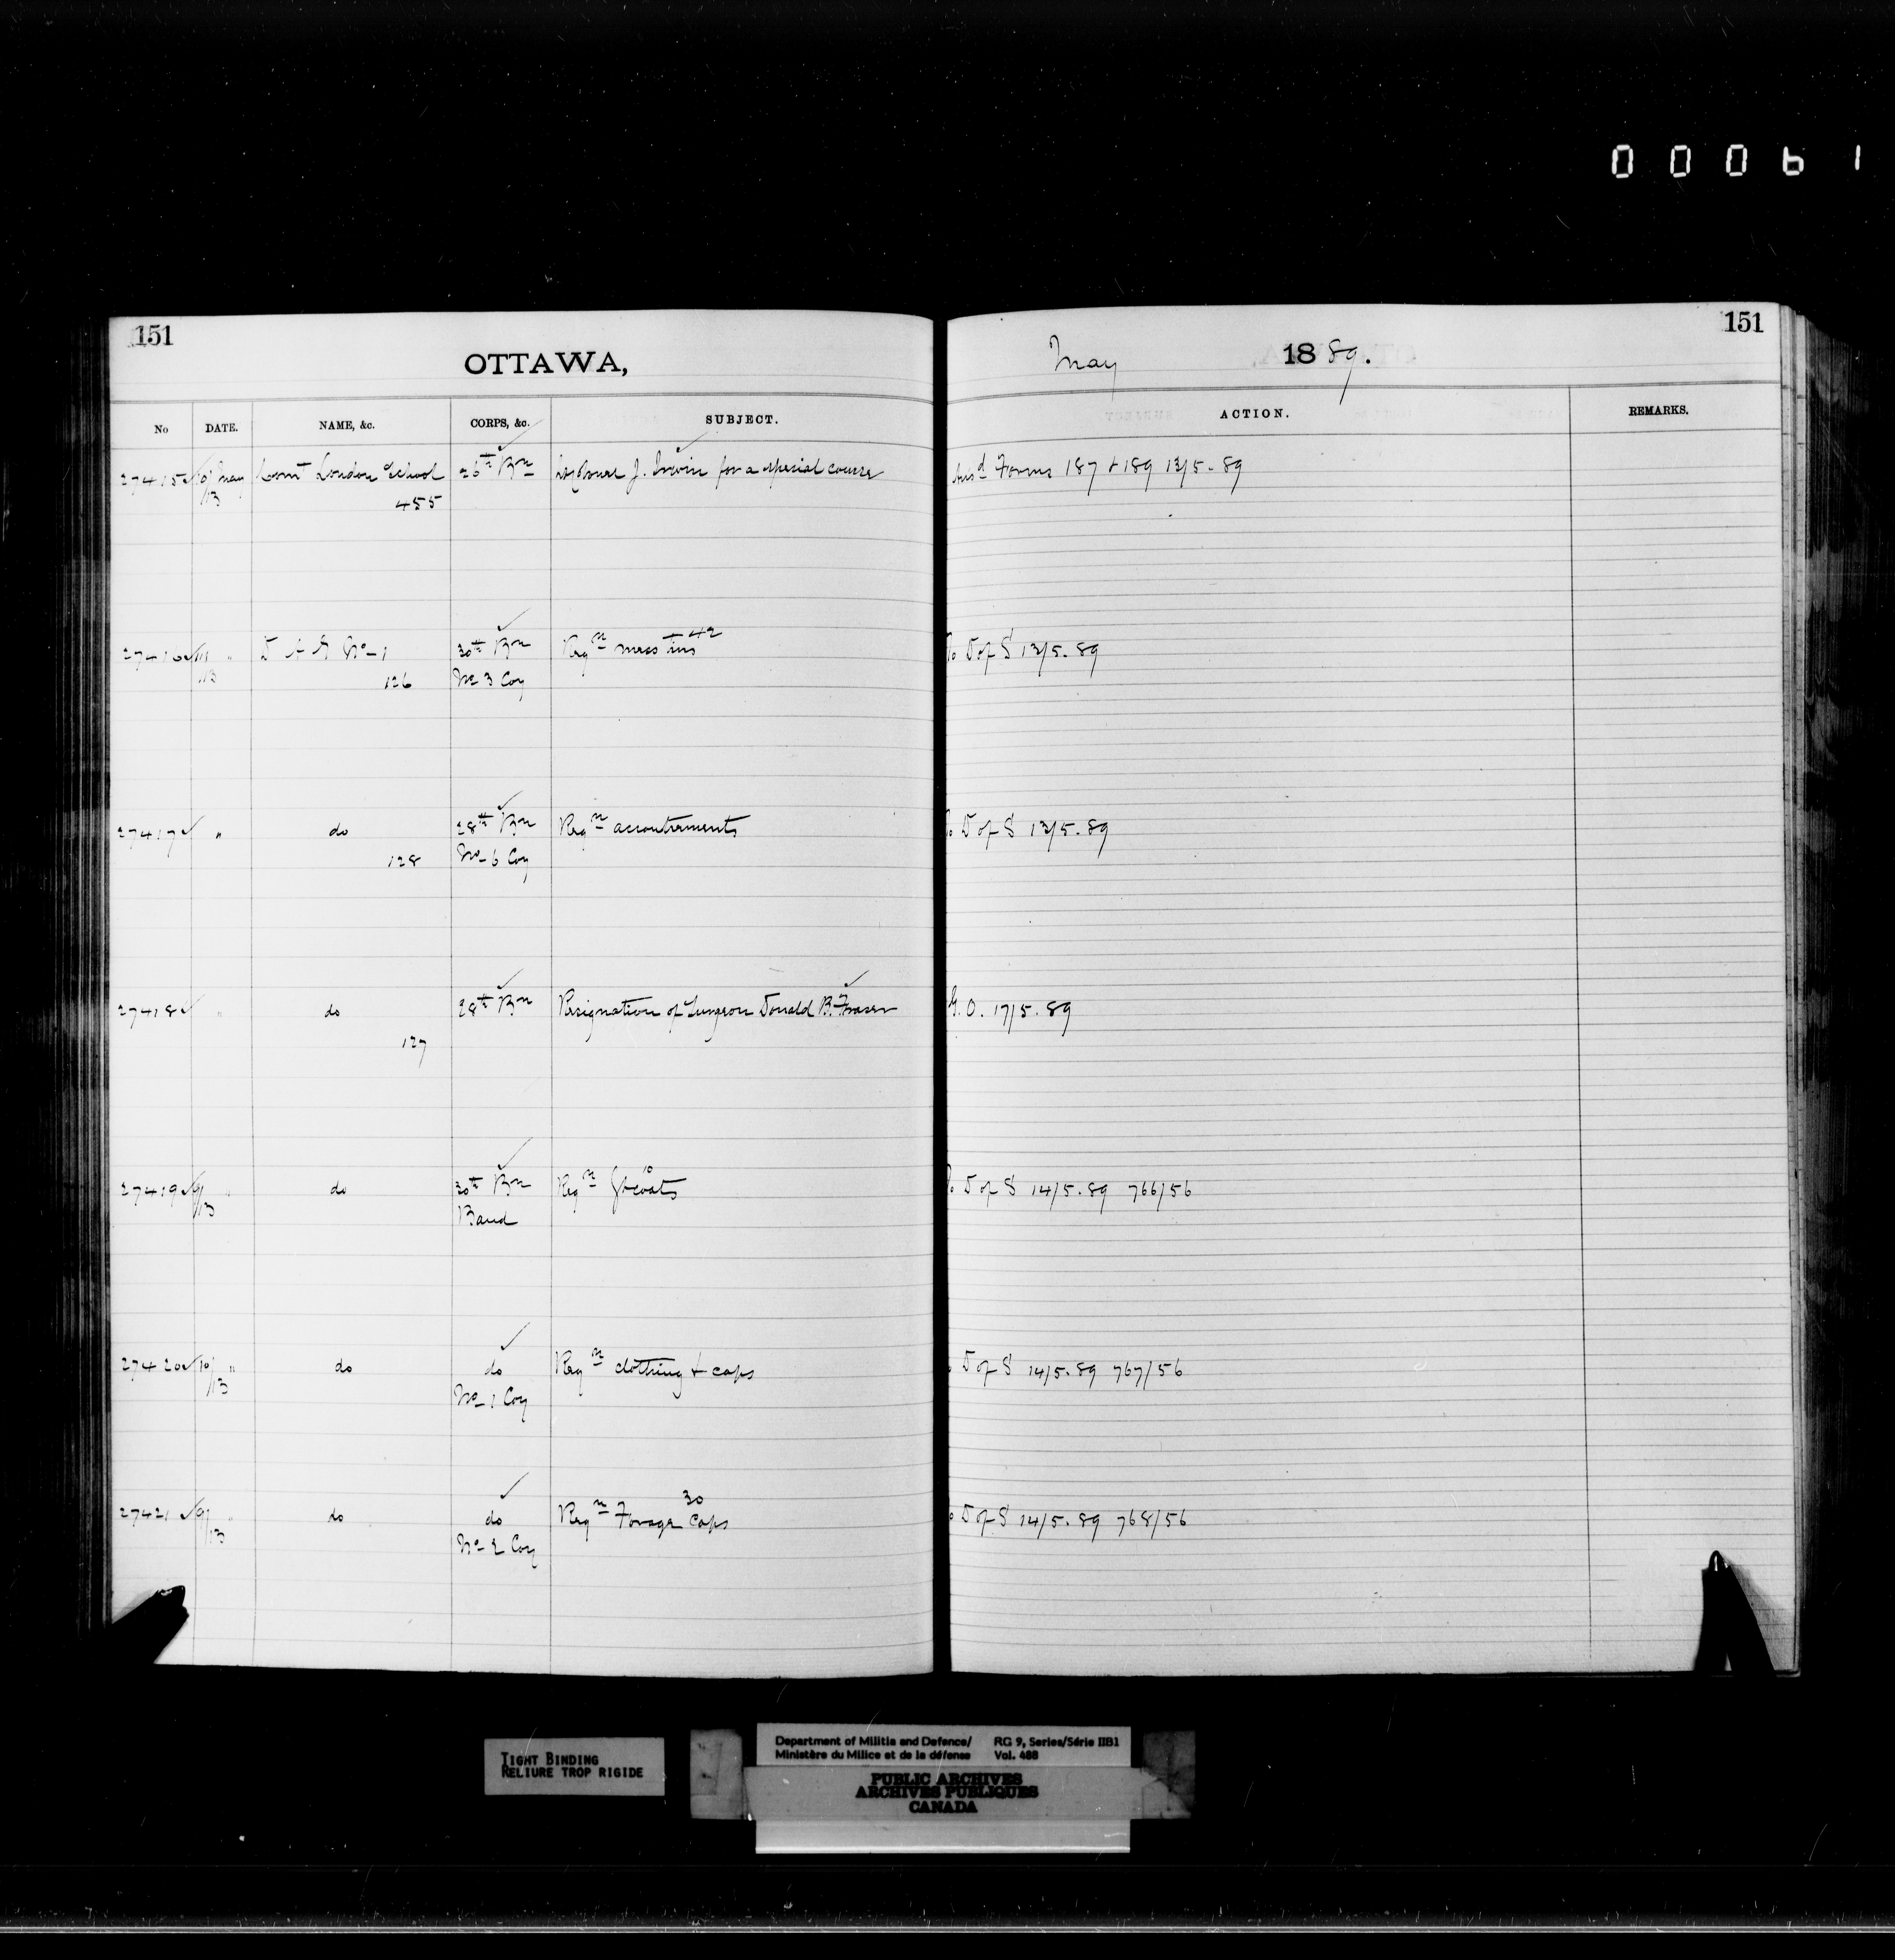 00061
151
OTTAWA,
No DATE. NAME, &c. CORPS, &c. SUBJECT.
27415 10/13 May Comt London School 26th Bn J. Irwin for a special course
455
27416 11/13 " D A G No 1 30th Bn Reqn mess tins 42
126 No 3 Coy
27417 " do 28th Bn Reqn accoutrements
128 No 6 Coy
27418 " do 28th Bn Resignation of Surgeon Donald B. Fraser
127
27419 9/13 " do 30th Bn Reqn Gtcoats 10
Band
27420 10/13 " do do Reqn clothing & caps
No 1 Coy
27421 9/13 " do do Reqn Forage Caps 30
No 2 Coy
151
May 1889.
ACTION. REMARKS.
Ansd Forms 187 & 189 13/5.89
To D of S 13/5.89
To D of S 13/5.89
G.O. 17/5.89
To D of S 14/5.89 766/56
D of S 14/5.89 767/56
D of S 14/5.89 768/56
TIGHT BINDING
RELIURE TROP RIGIDE
Department of Militia and Defence/ RG 9, Series/Série IIB1
Ministère du Milice et de la défense Vol. 488
PUBLIC ARCHIVES
ARCHIVES PUBLIQUES
CANADA